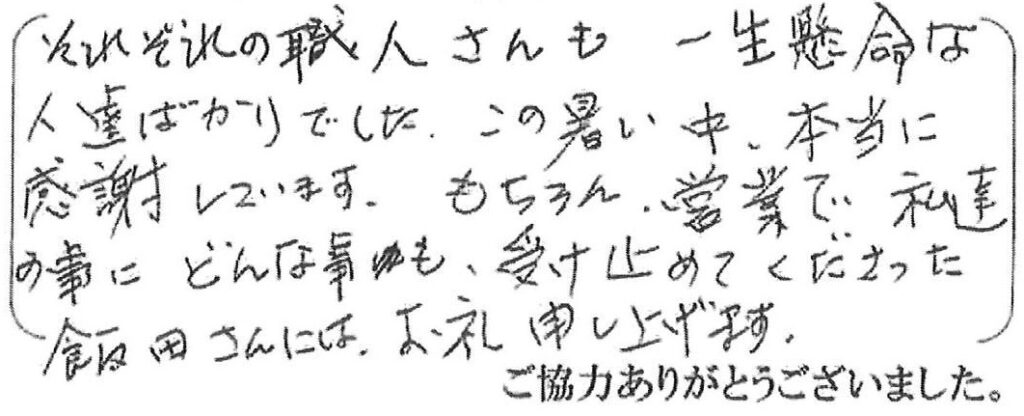 それぞれの職人さんも 一生懸命な
人達ばかりでした. この暑い中、本当に
感謝しています. もちろん、営業で、私達
の事に どんな事も、受け止めてくださった
飯田さんには、お礼申し上げます.
ご協力ありがとうございました。